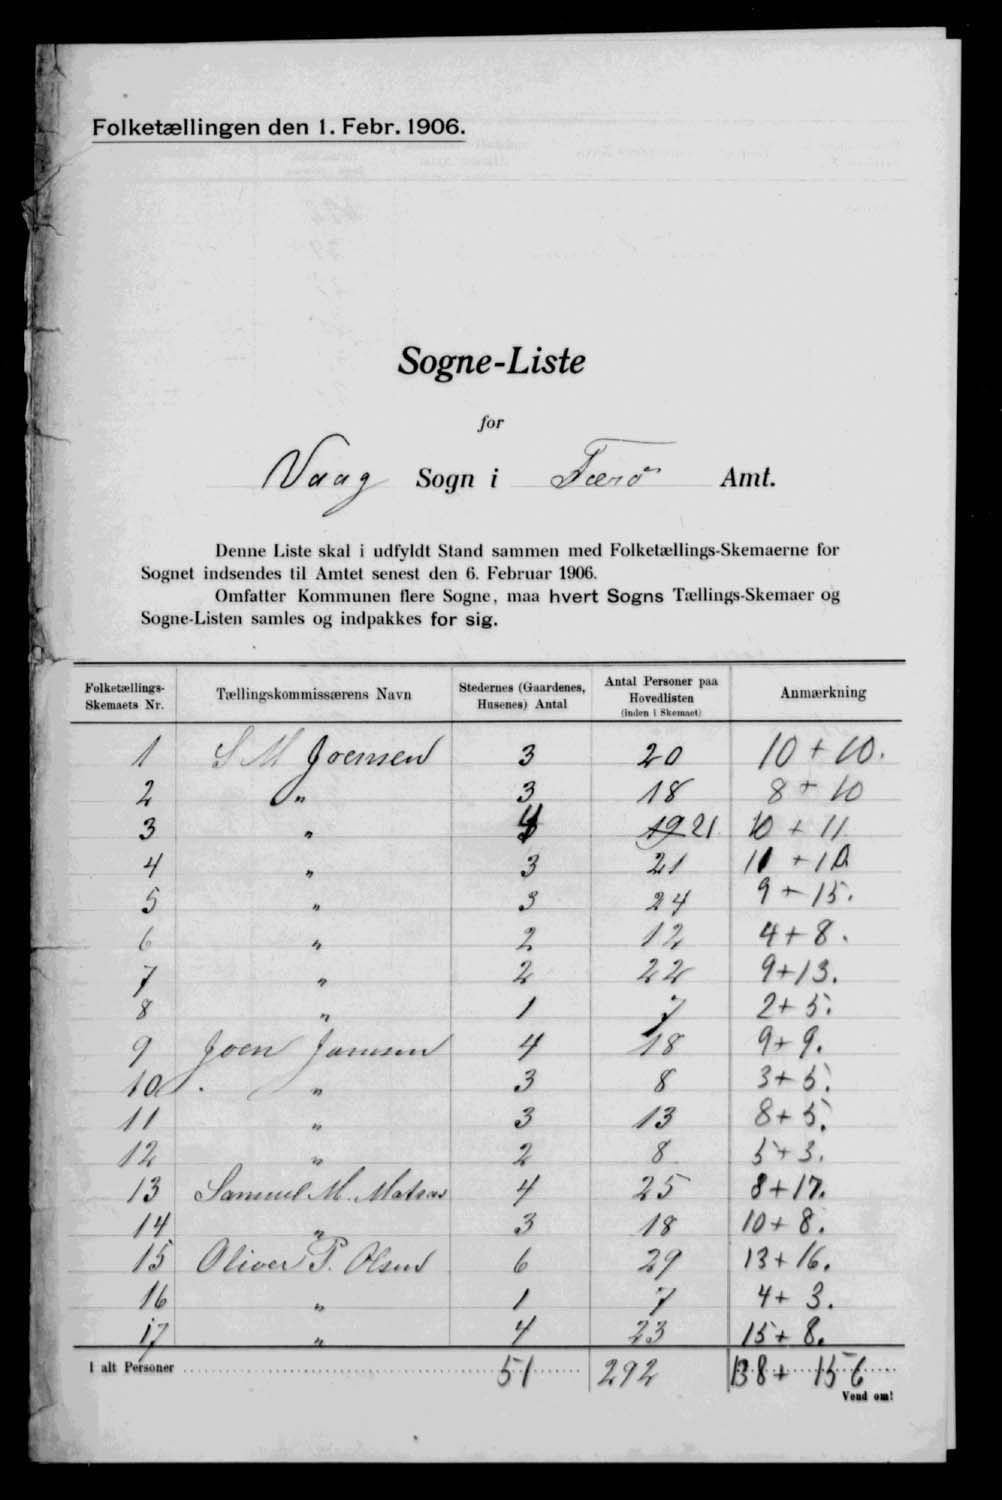 Folketællingen den 1. Febr. 1906.
Sogne-Liste
for
Vaag Sogn i Færö Amt.
Denne Liste skal i udfyldt Stand sammen med Folketællings-Skemaerne for
Sognet indsendes til Amtet senest den 6. Februar 1906.
Omfatter Kommunen flere Sogne, maa hvert Sogns Tællings-Skemaer og
Sogne-Listen samles og indpakkes for sig.
Folketællings-Skemaets Nr. Tællingskommissærens Navn Stedernes (Gaardenes, Husenes) Antal Antal Personer paa Hovedlisten (inden i Skemaet) Anmærkning
1 S M Joensen 3 20 10 + 10.
2 „ 3 18 8 + 10
3 „ 4 19 21 10 + 11
4 „ 3 21 11 + 10
5 „ 3 24 9 + 15.
6 „ 2 12 4 + 8.
7 „ 2 22 9 + 13.
8 „ 1 7 2 + 5.
9 Joen Jansen 4 18 9 + 9.
10 „ 3 8 3 + 5.
11 „ 3 13 8 + 5.
12 „ 2 8 5 + 3.
13 Samuel M. Matras 4 25 8 + 17.
14 „ 3 18 10 + 8.
15 Oliver P. Olsen 6 29 13 + 16.
16 „ 1 7 4 + 3.
17 „ 4 23 15 + 8.
I alt Personer 51 292 138 + 156
Vend om!